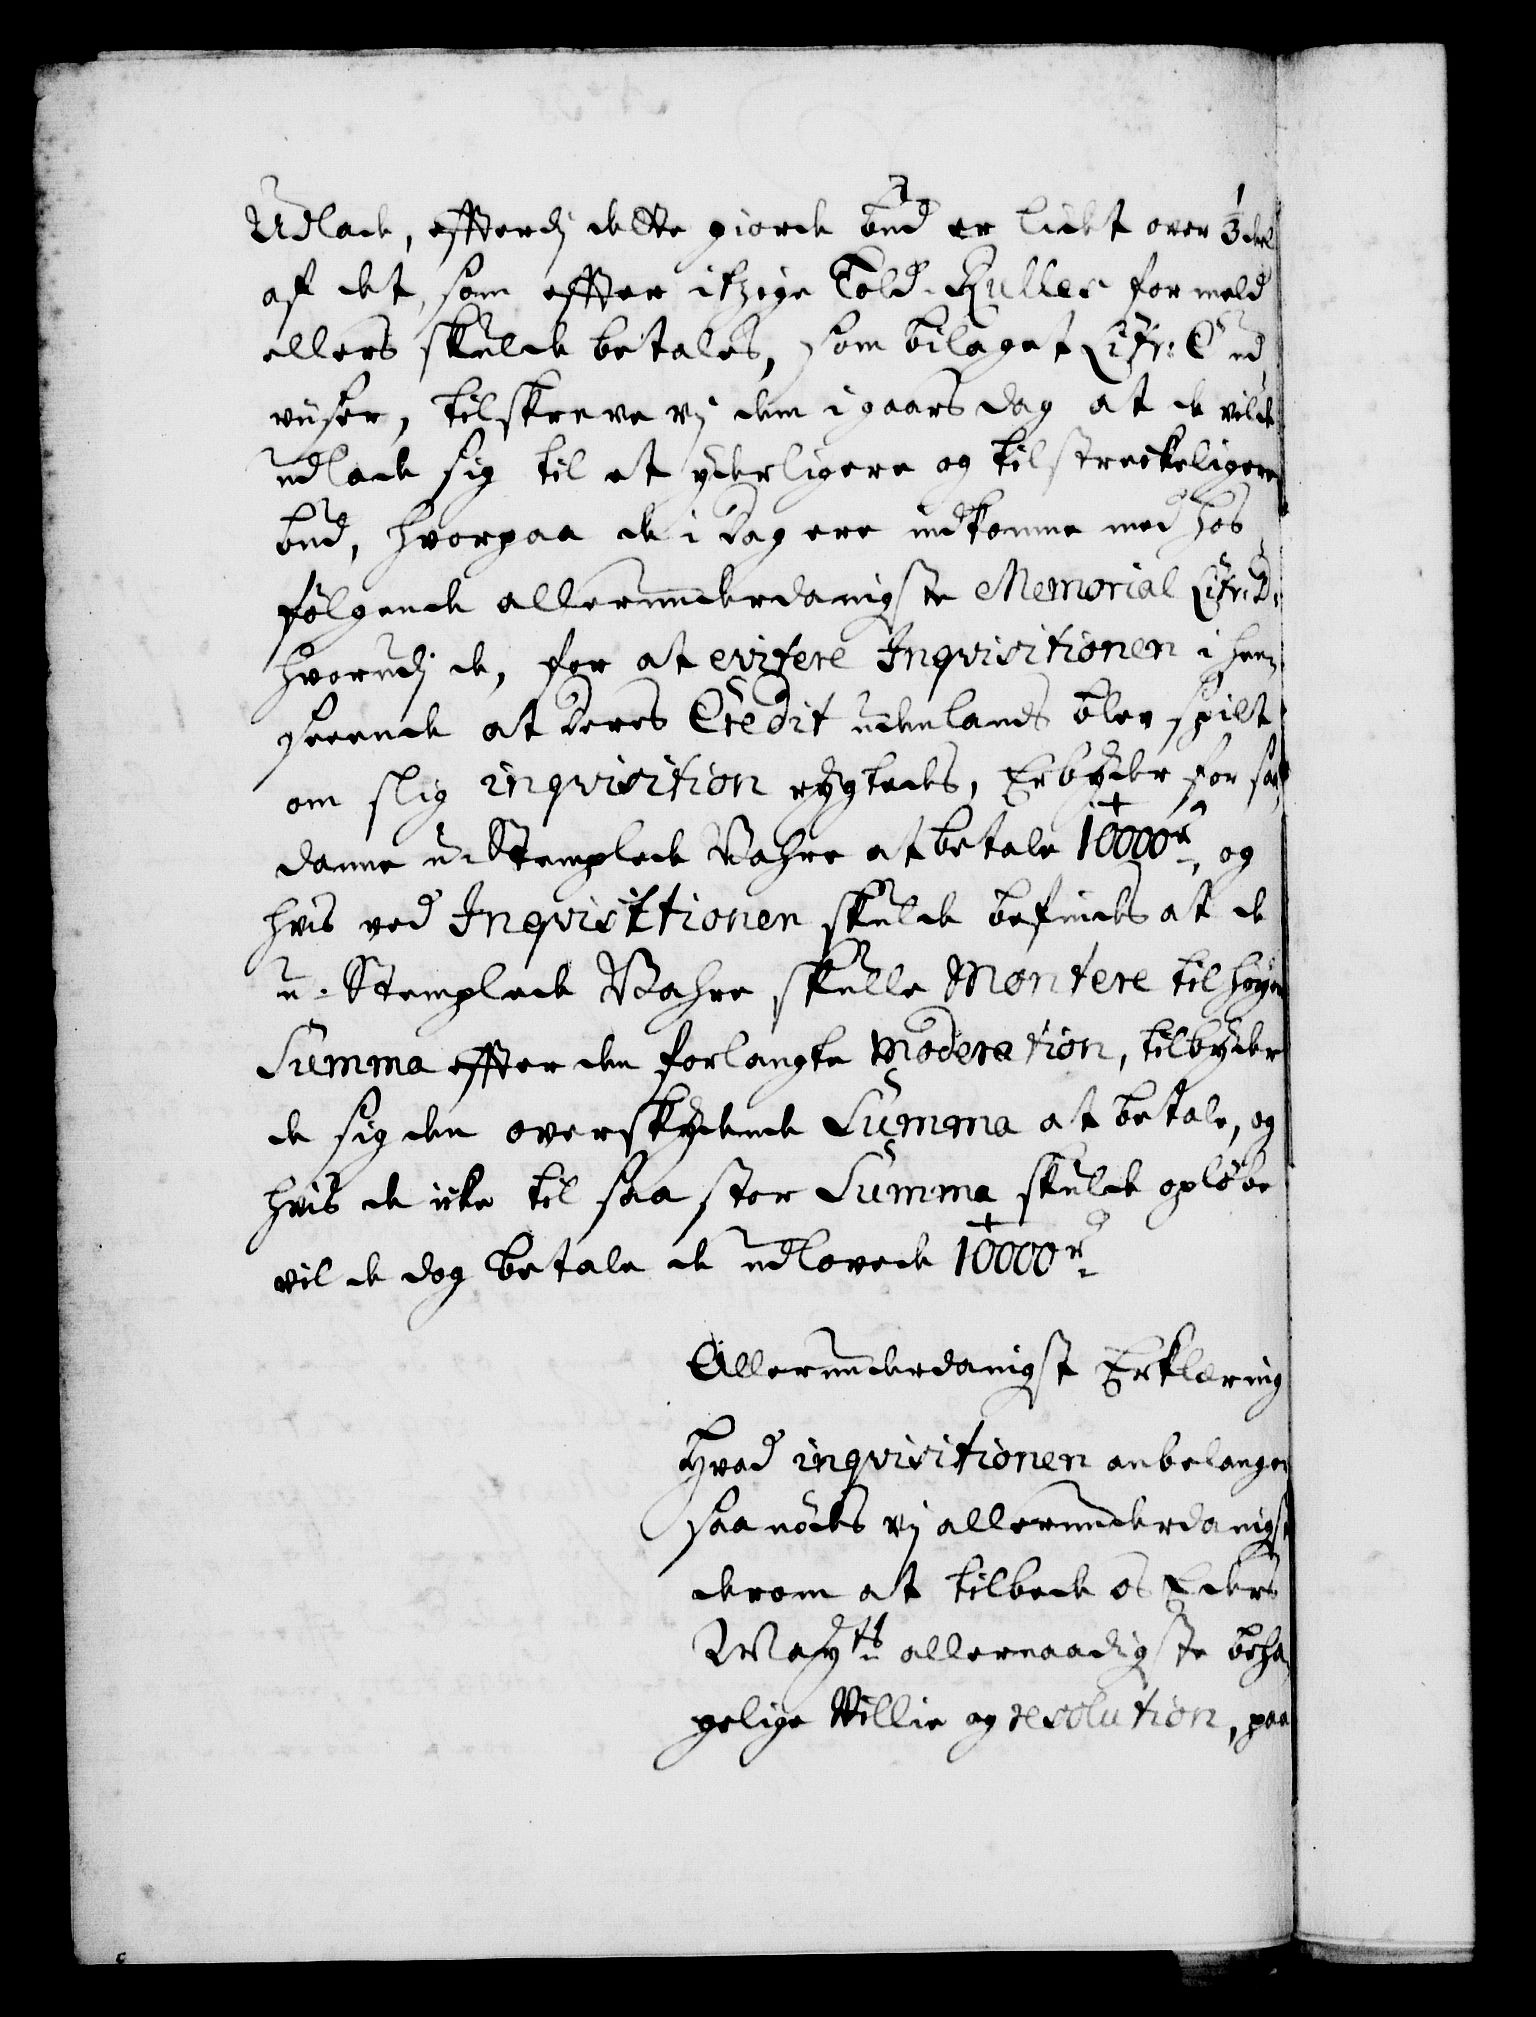 Udlade, efftterdj dette giorde bud er lidet over 1/3 deel
af det, som effter itzige Told-Rulles formeld
ellers skulde betales, som bilaget Litr: C ud,
viiser, tilskreve vj dem i gaars dag at de vilde
udlade sig til et yderligere og tilstreckeligere
bud, hvorpaa de i Dag ere indkomne med hos
følgende allerunderdanigste Memorial Litr: D:
hvorudj de, for at evitere Inqvisitionen i hen,
seende at deres Credit udenlands blev spilt
om slig inqvisition rygtedes, Erbyder for saa,
danne u-Stemplede Vahre at betale 10000 r, og
hvis ved Inqvisitionen skulde befindes at de
u-Stemplede Vahre skulle Montere til høyere
Summa effter den forlangte Moderation, tilbyder
de sig den overskydende Summa at betale, og
hvis de icke til saa stor Summa skulde opløbe
vil de dog betale de udlovede 10000 r
Allerunderdanigst Erklæring
Hvad inqvisitionen anbelanger
saa nødes vj allerunderdanigst
derom at tilbede os Eders
Mayts allernaadigste beha,
gelige Villie og resolution, paa